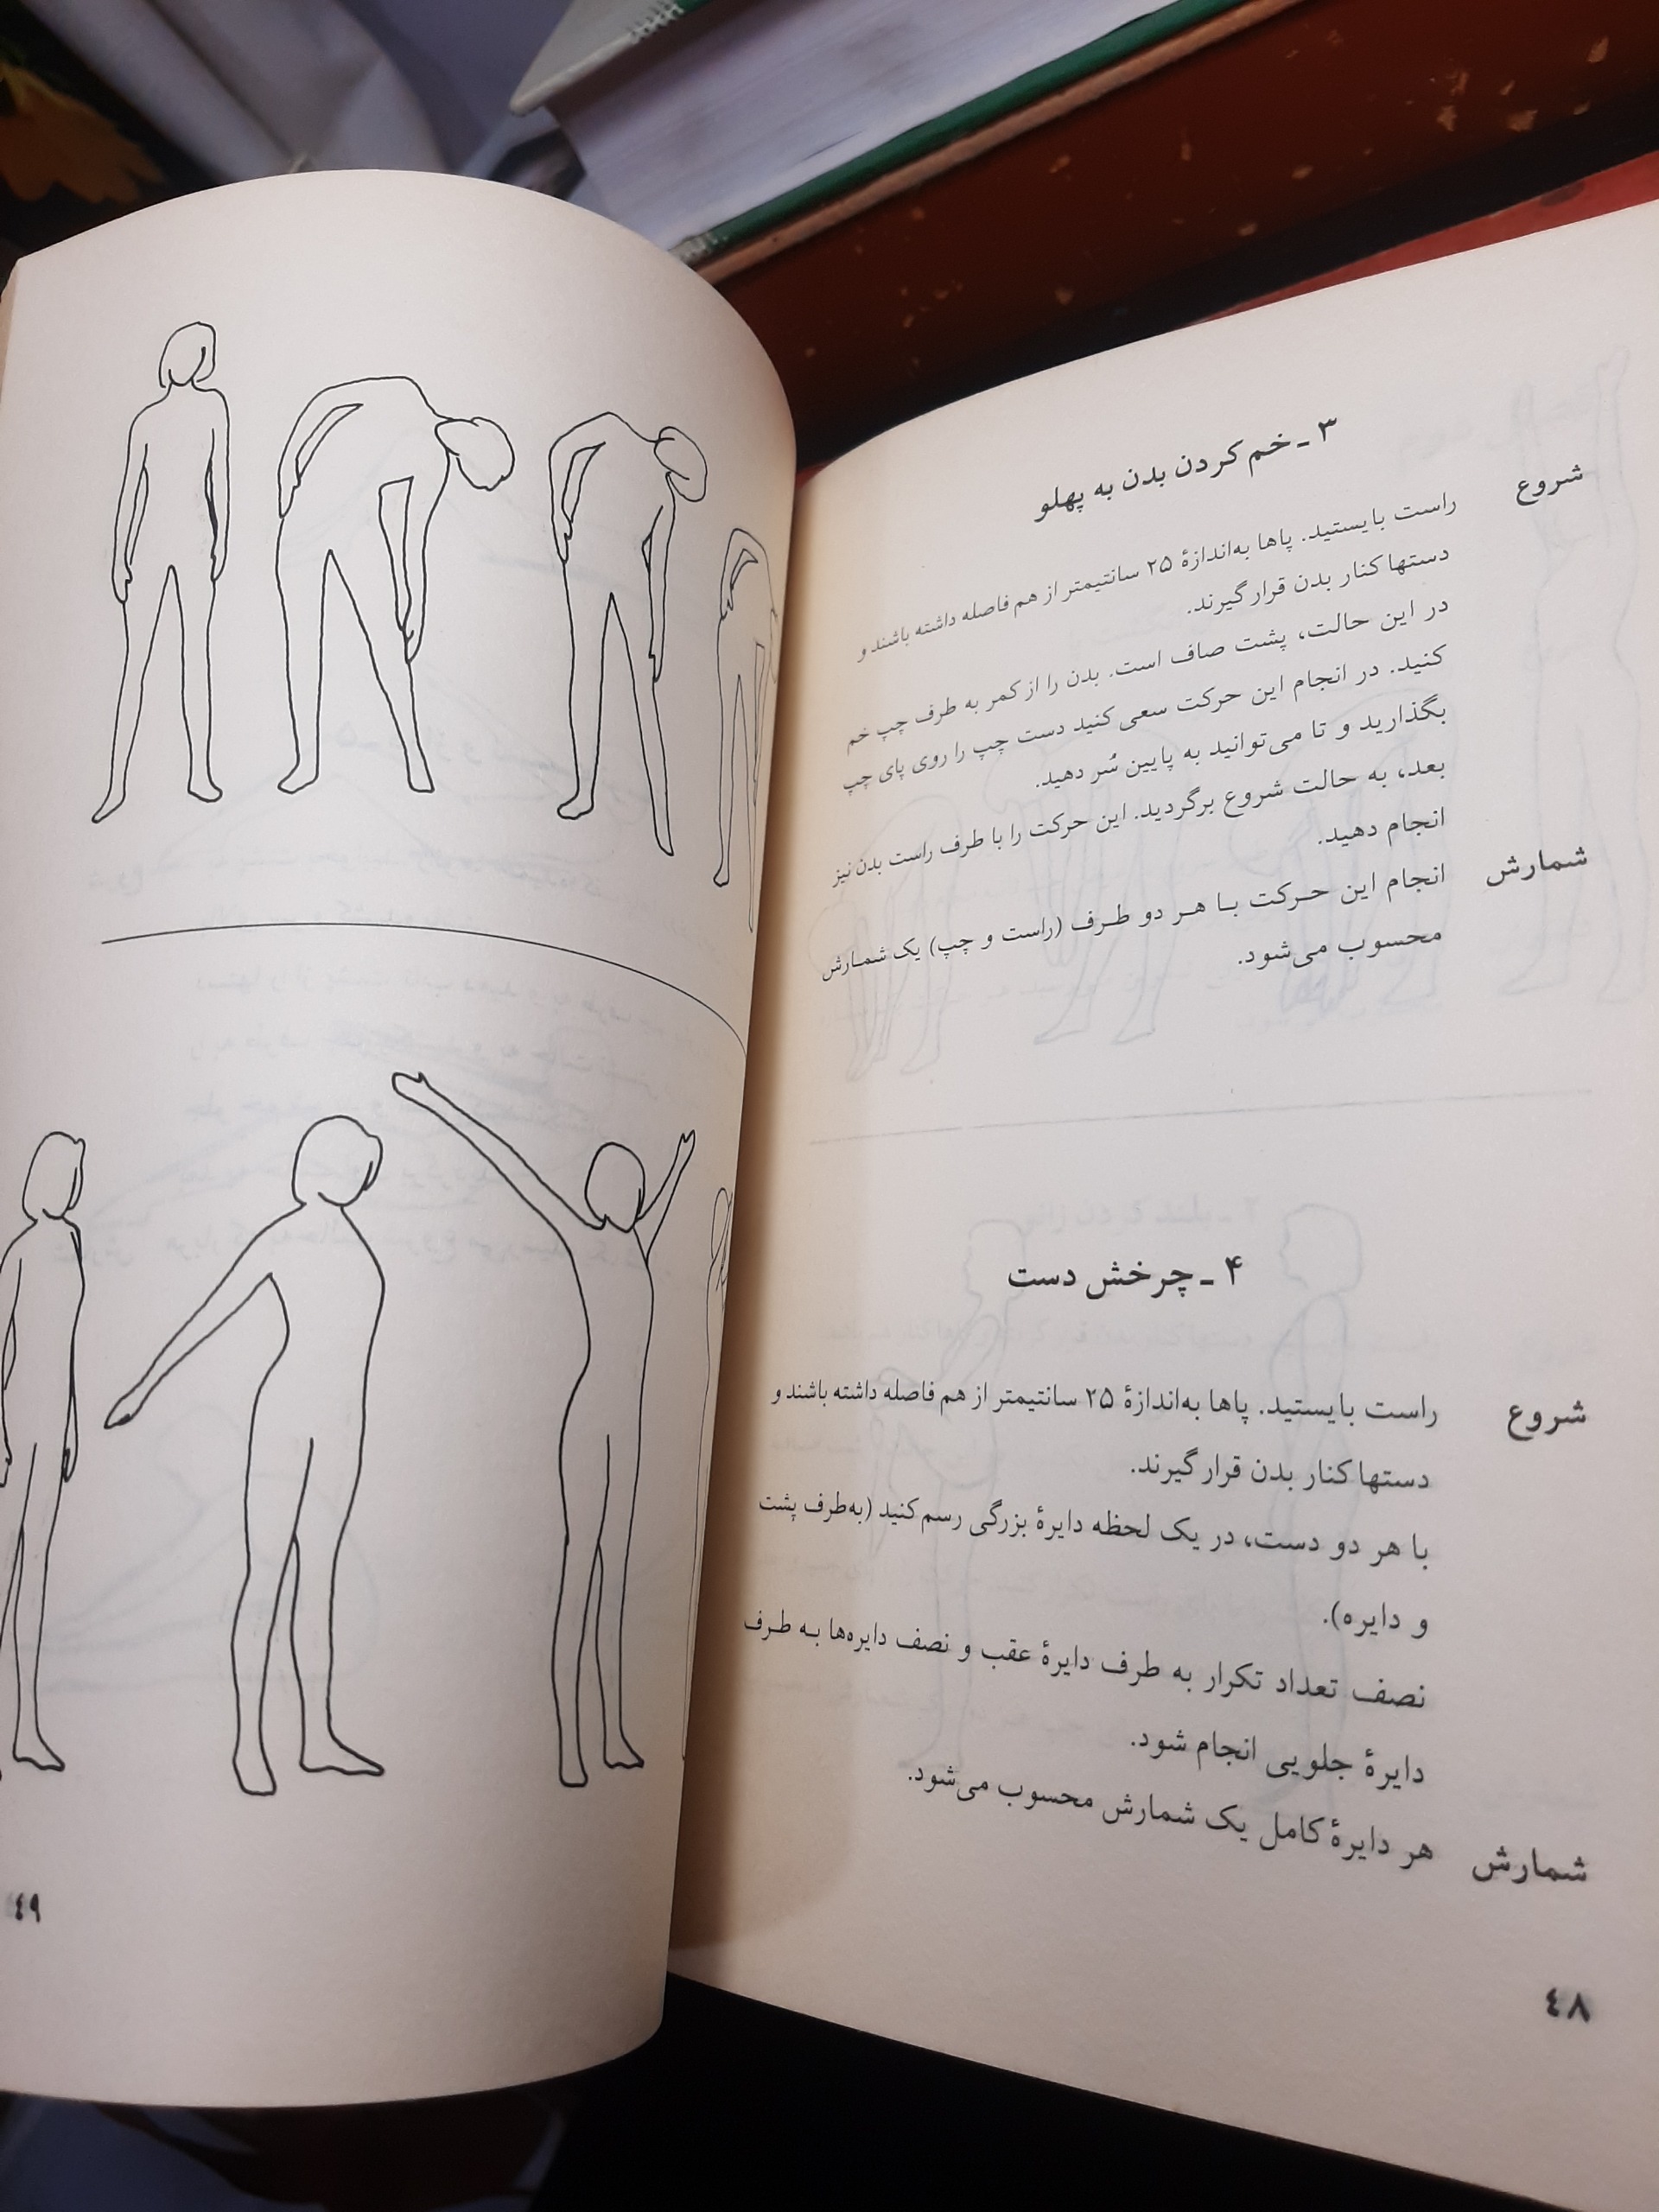 ۳ ـ خم کردن بدن به پهلو
شروع
راست بایستید. پاها به‌اندازهٔ ۲۵ سانتیمتر از هم فاصله داشته باشند و
دستها کنار بدن قرار گیرند.
در این حالت، پشت صاف است. بدن را از کمر به طرف چپ خم
کنید. در انجام این حرکت سعی کنید دست چپ را روی پای چپ
بگذارید و تا می‌توانید به پایین سُر دهید.
بعد، به حالت شروع برگردید. این حرکت را با طرف راست بدن نیز
انجام دهید.
شمارش
انجام این حرکت با هر دو طرف (راست و چپ) یک شمارش
محسوب می‌شود.
۴ ـ چرخش دست
شروع
راست بایستید. پاها به‌اندازهٔ ۲۵ سانتیمتر از هم فاصله داشته باشند و
دستها کنار بدن قرار گیرند.
با هر دو دست، در یک لحظه دایرهٔ بزرگی رسم کنید (به‌طرف پشت
و دایره).
نصف تعداد تکرار به طرف دایرهٔ عقب و نصف دایره‌ها به طرف
دایرهٔ جلویی انجام شود.
شمارش
هر دایرهٔ کامل یک شمارش محسوب می‌شود.
٤٨
٤٩